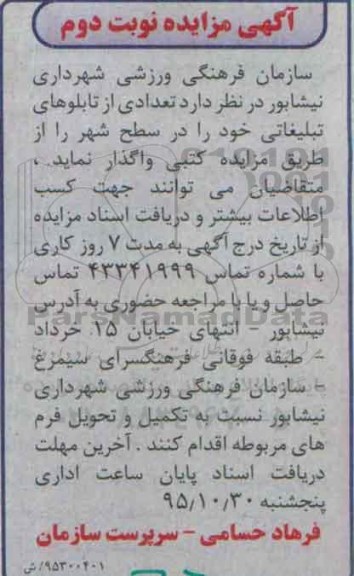 آگهی مزایده نوبت دوم
سازمان فرهنگی ورزشی شهرداری
نیشابور در نظر دارد تعدادی از تابلوهای
تبلیغاتی خود را در سطح شهر را از
طریق مزایده کتبی واگذار نماید ،
متقاضیان می توانند جهت کسب
اطلاعات بیشتر و دریافت اسناد مزایده
از تاریخ درج آگهی به مدت ۷ روز کاری
با شماره تماس ۴۳۳۴۱۹۹۹ تماس
حاصل و یا با مراجعه حضوری به آدرس
نیشابور – انتهای خیابان ۱۵ خرداد
– طبقه فوقانی فرهنگسرای سیمرغ
– سازمان فرهنگی ورزشی شهرداری
نیشابور نسبت به تکمیل و تحویل فرم
های مربوطه اقدام کنند . آخرین مهلت
دریافت اسناد پایان ساعت اداری
پنجشنبه ۹۵/۱۰/۳۰
فرهاد حسامی – سرپرست سازمان
۹۵۳۰۰۴۰۱/ش
ParsNamadData